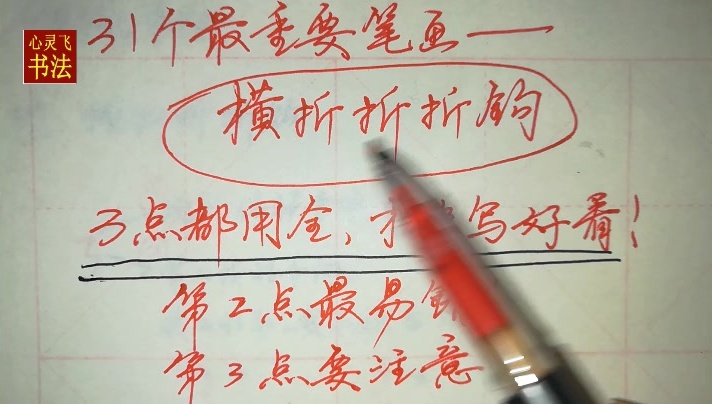 心灵飞
书法
31个最重要笔画——
横折折折钩
3点都用全,才写好看!
第2点最易错
第3点要注意